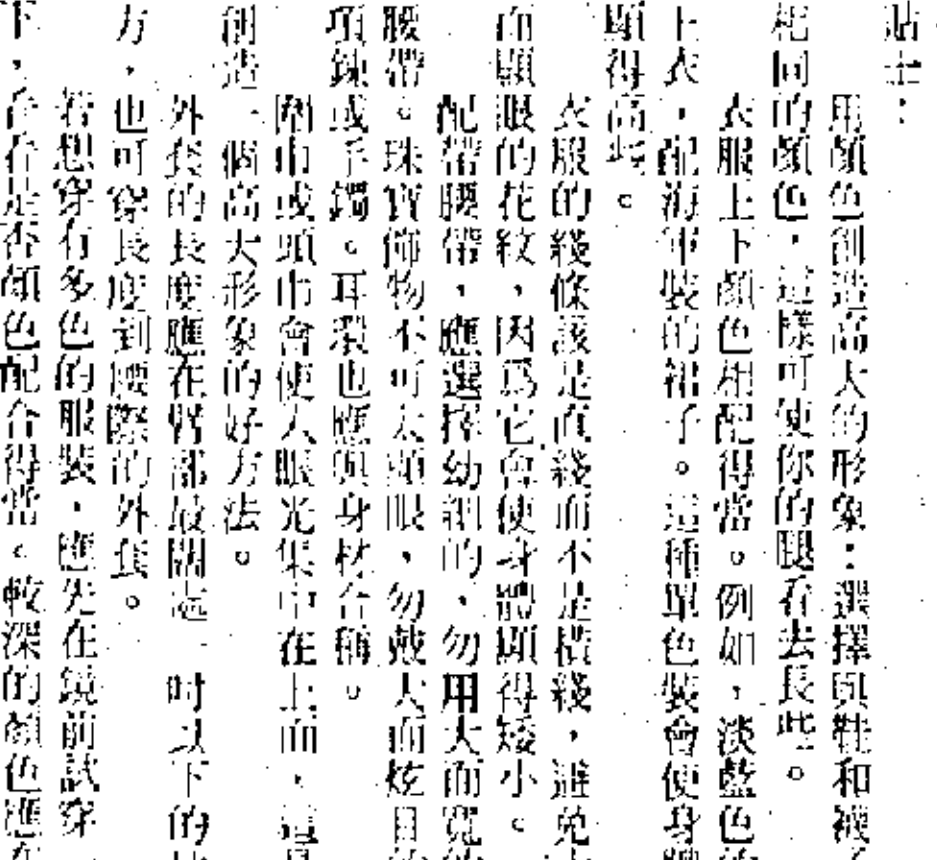 貼士：
用顏色創造高大的形象：選擇與鞋和襪
相同的顏色，這樣可使你的腿看去長些。
衣服上下顏色相配得當。例如，淡藍色的
上衣，配海軍裝的裙子。這種單色裝會使身體
顯得高些。
衣服的綫條該是直綫而不是橫綫，避免
而顯眼的花紋，因爲它會使身體顯得矮小。
配帶腰帶，應選擇幼細的，勿用大而寬的
腰帶。珠寶飾物不可太顯眼，勿戴大而炫目的
項鍊或手鐲。耳環也應與身材合稱。
闊巾或頭巾會使人眼光集中在上面，這是
創造一個高大形象的好方法。
外套的長度應在臀部最闊處一吋以下的
方，也可穿長度到腰際的外套。
若想穿有多色的服裝，應先在鏡前試穿
下，看看是否顏色配合得當。較深的顏色應在